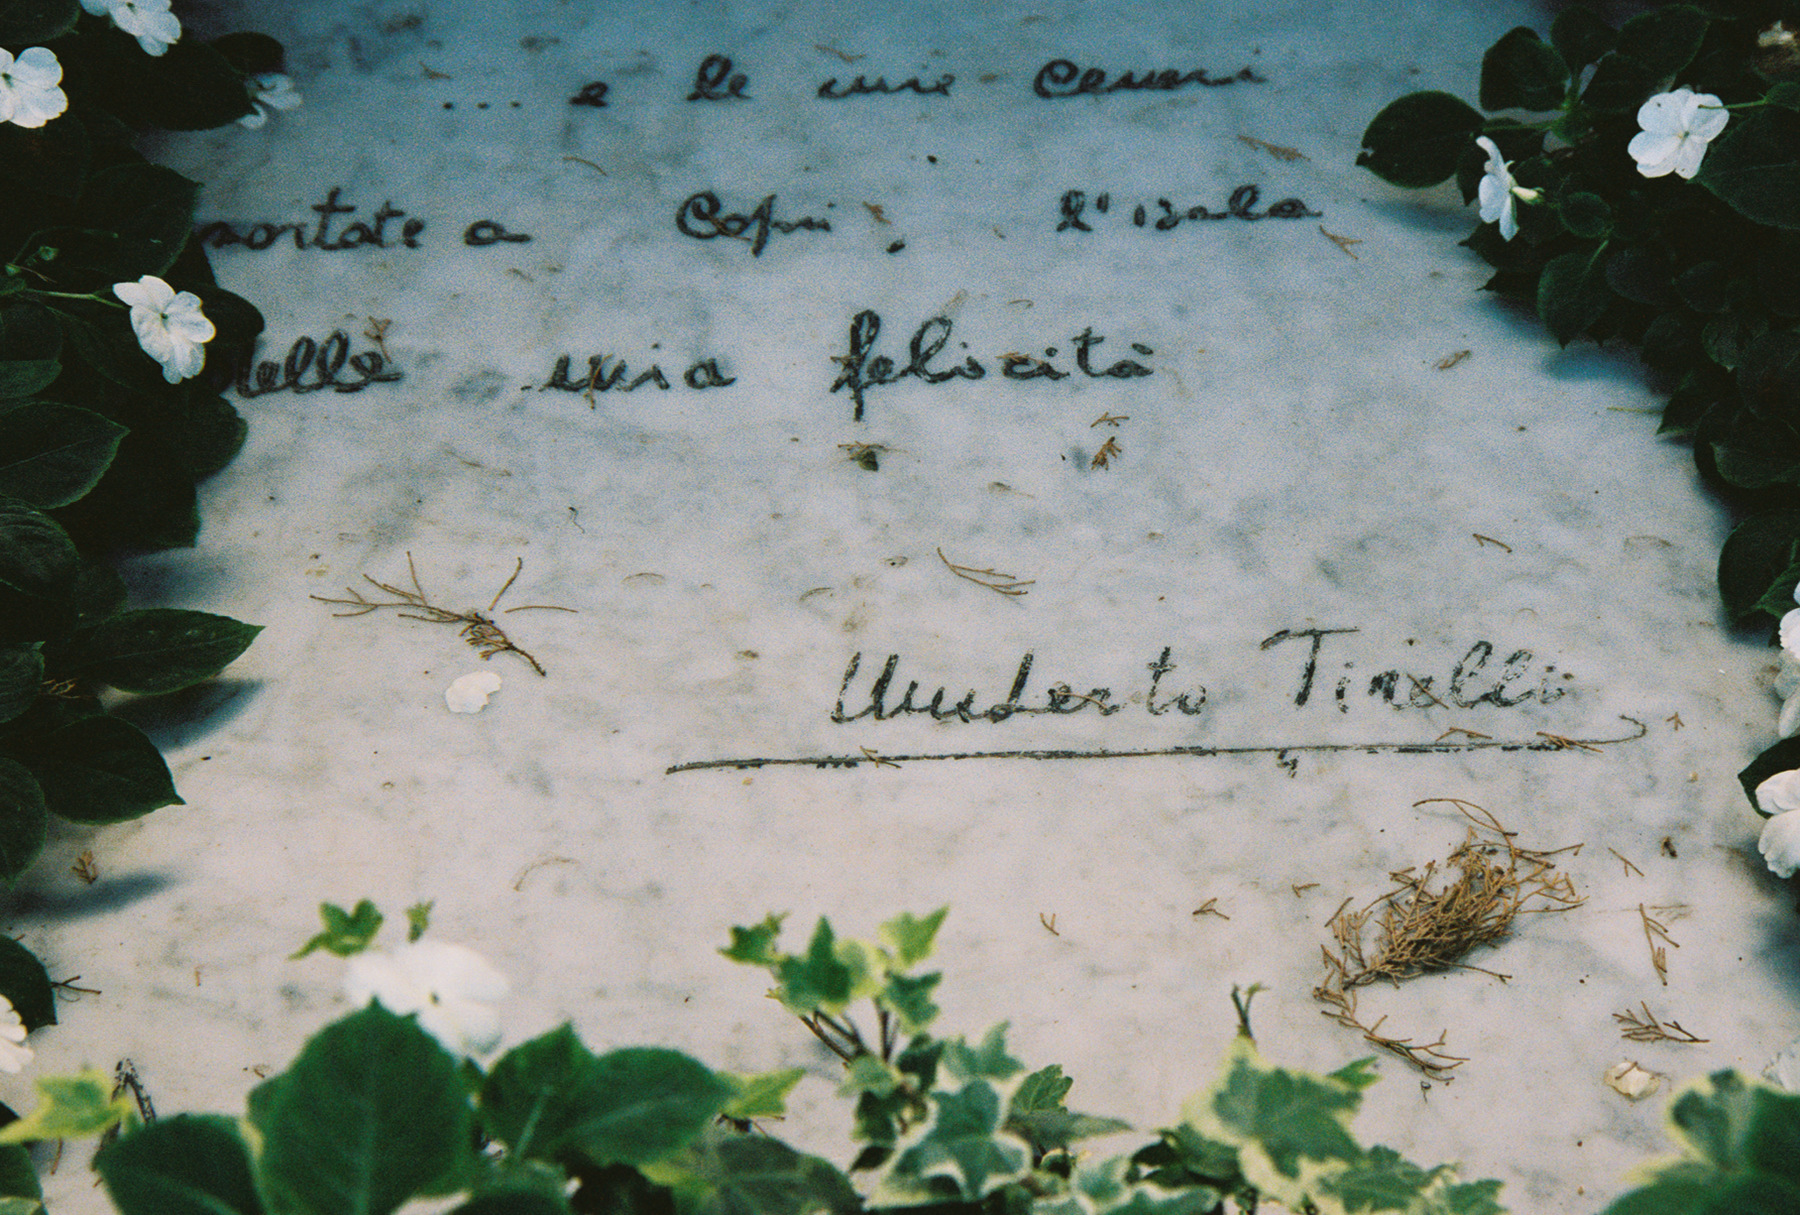 ... e le mie ceneri
portate a Capri, l'isola
della mia felicità
Umberto Tirelli